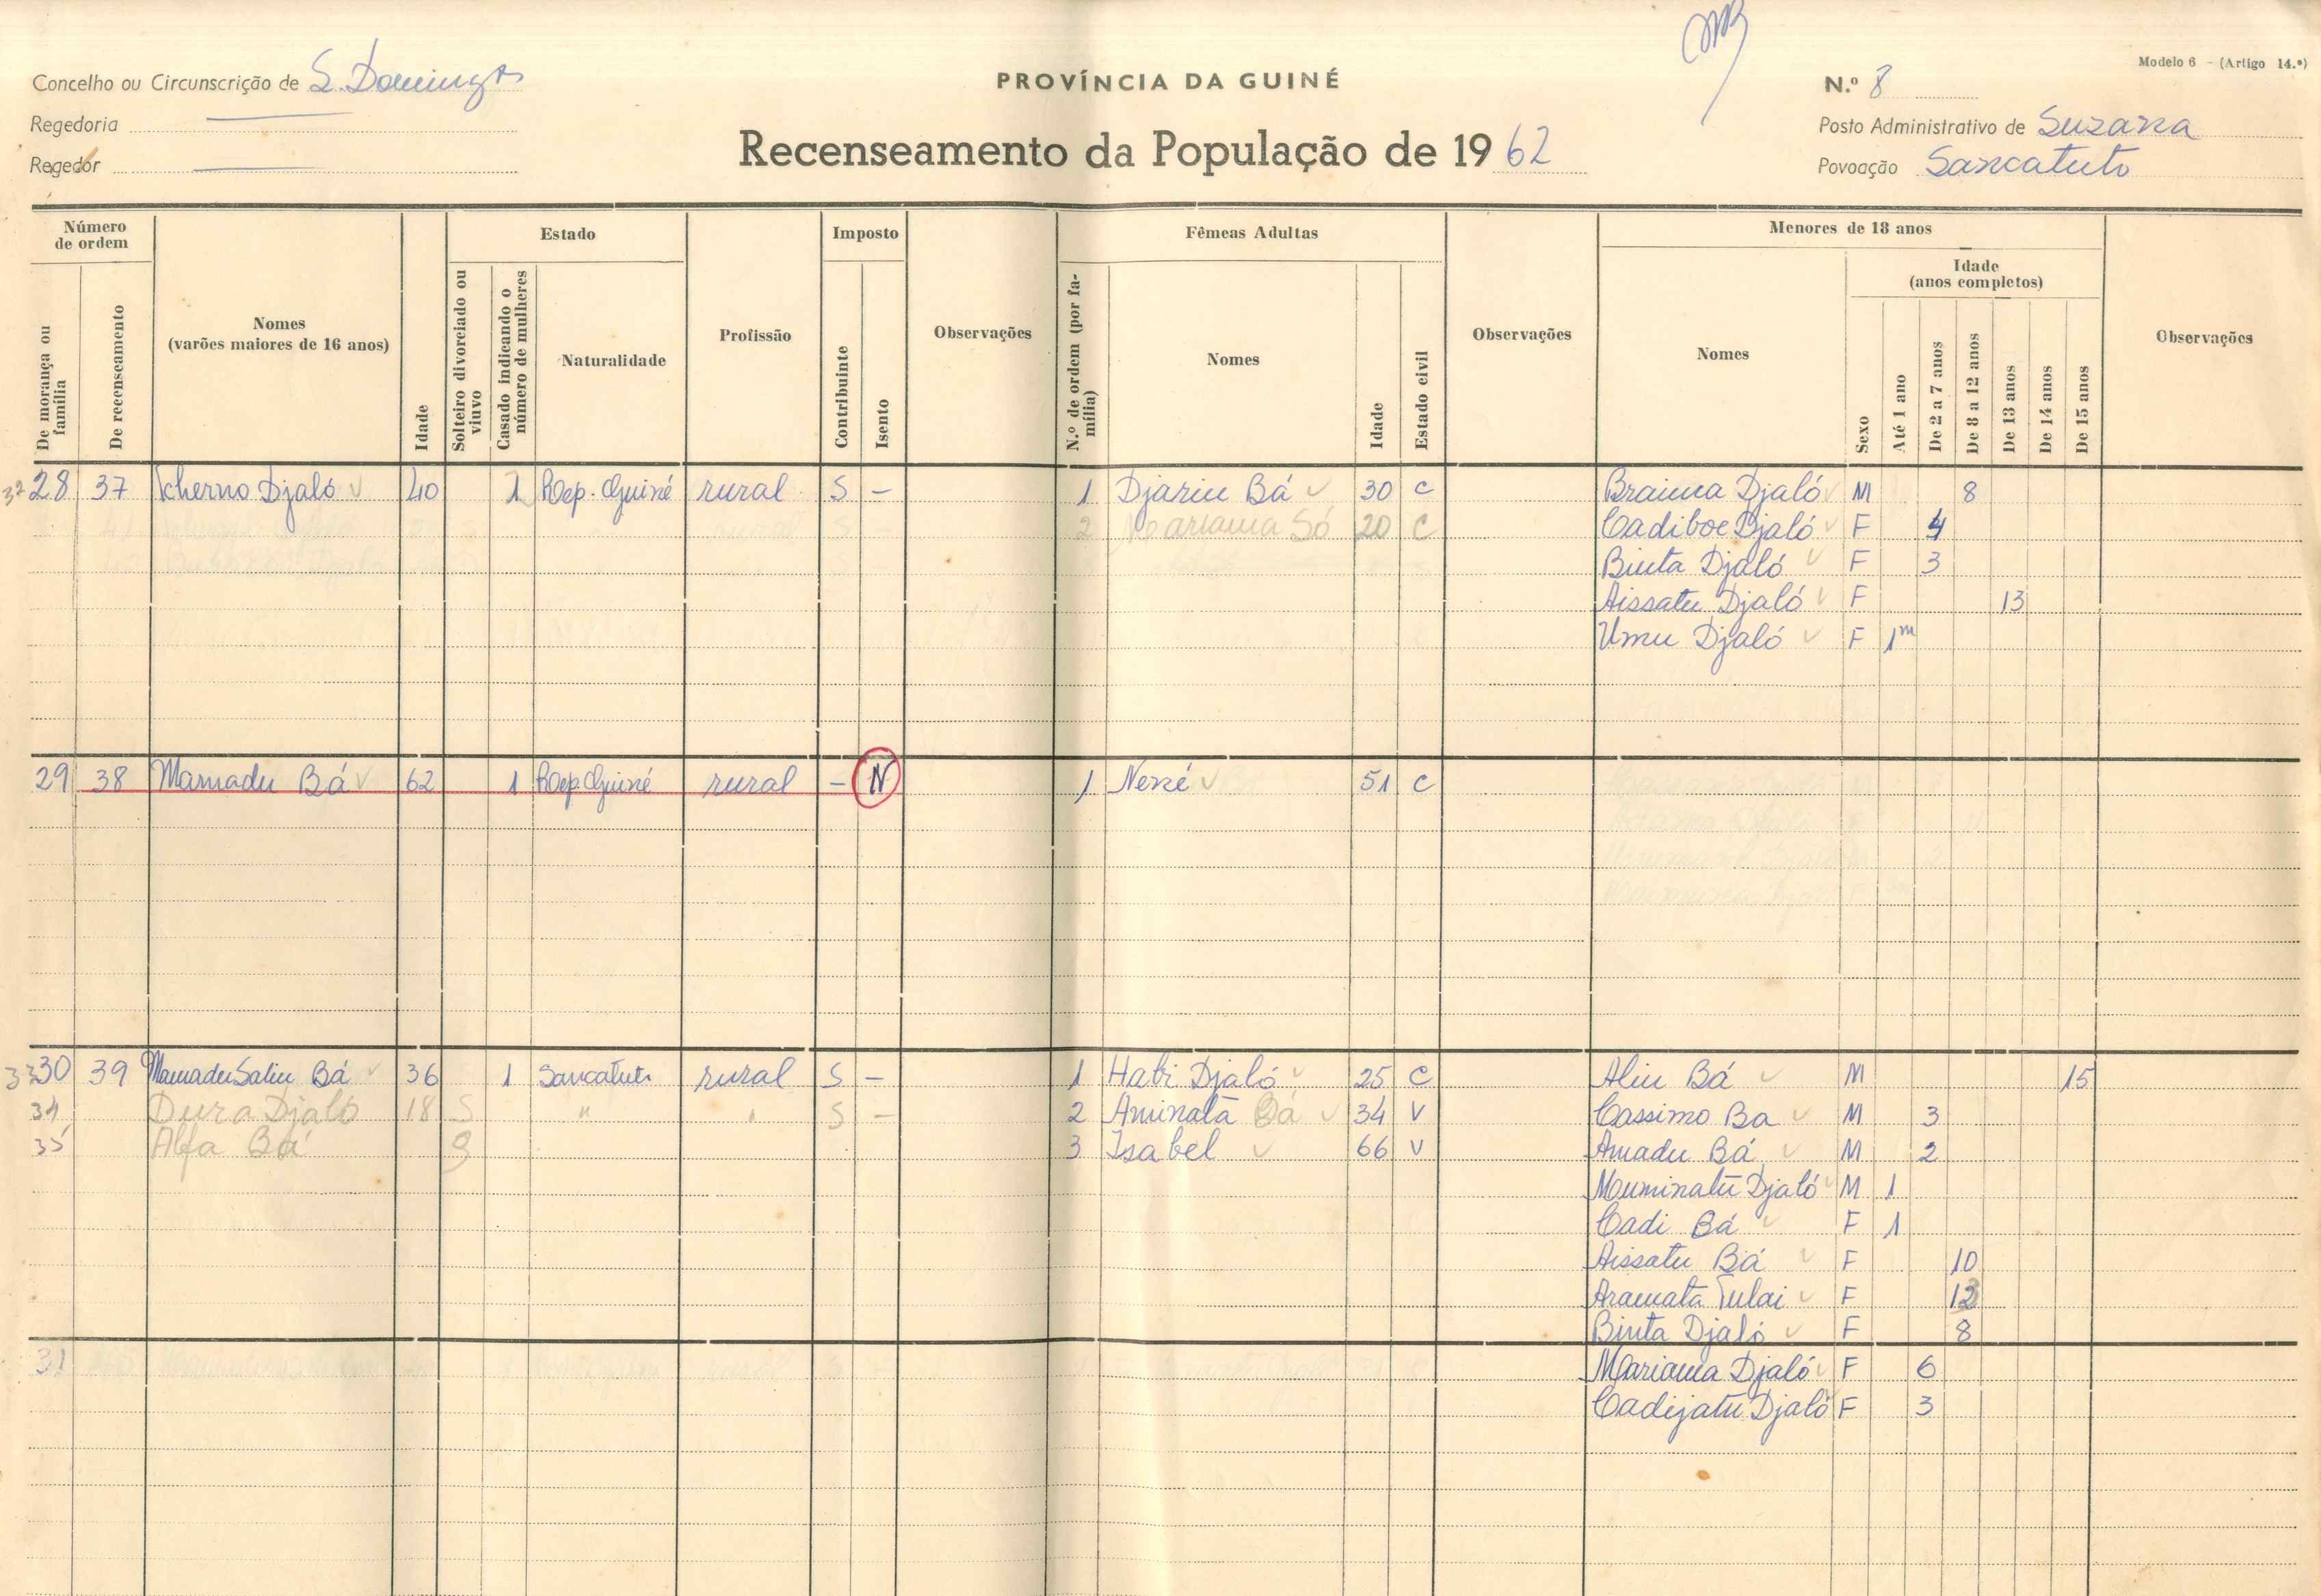 Modelo 6 - (Artigo 14.º)
Concelho ou Circunscrição de S. Domingos
PROVÍNCIA DA GUINÉ
N.º 8
Regedoria
Posto Administrativo de Suzana
Regedor
Recenseamento da População de 1962
Povoação Sancatuto
Número de ordem
Estado
Imposto
Fêmeas Adultas
Menores de 18 anos
De morança ou família
De recenseamento
Nomes
(varões maiores de 16 anos)
Idade
Solteiro divorciado ou viuvo
Casado indicando o número de mulheres
Naturalidade
Profissão
Contribuinte
Isento
Observações
N.º de ordem (por família)
Nomes
Idade
Estado civil
Observações
Nomes
Sexo
Idade
(anos completos)
Até 1 ano
De 2 a 7 anos
De 8 a 12 anos
De 13 anos
De 14 anos
De 15 anos
Observações
32 28 37 Tcherno Djaló 40 1 Rep. Guiné rural S - 1 Djariu Bá 30 C Braima Djaló M 8
2 Mariama Só 20 C Cadiboe Djaló F 4
Binta Djaló F 3
Aissatu Djaló F 13
Umu Djaló F 1m
29 38 Mamadu Bá 62 1 Rep. Guiné rural - N 1 Nené 51 C
33 30 39 Mamadu Saliu Bá 36 1 Sancatuto rural S - 1 Habi Djaló 25 C Aliu Bá M 15
34 Dura Djaló 18 S " " S - 2 Aminata Bá 34 V Cassimo Ba M 3
35 Alfa Bá S 3 Isabel 66 V Amadu Bá M 2
Muminatu Djaló M 1
Cadi Bá F 1
Aissatu Bá F 10
Aramata Tulai F 12
Binta Djaló F 8
31 Mariama Djaló F 6
Cadijatu Djaló F 3